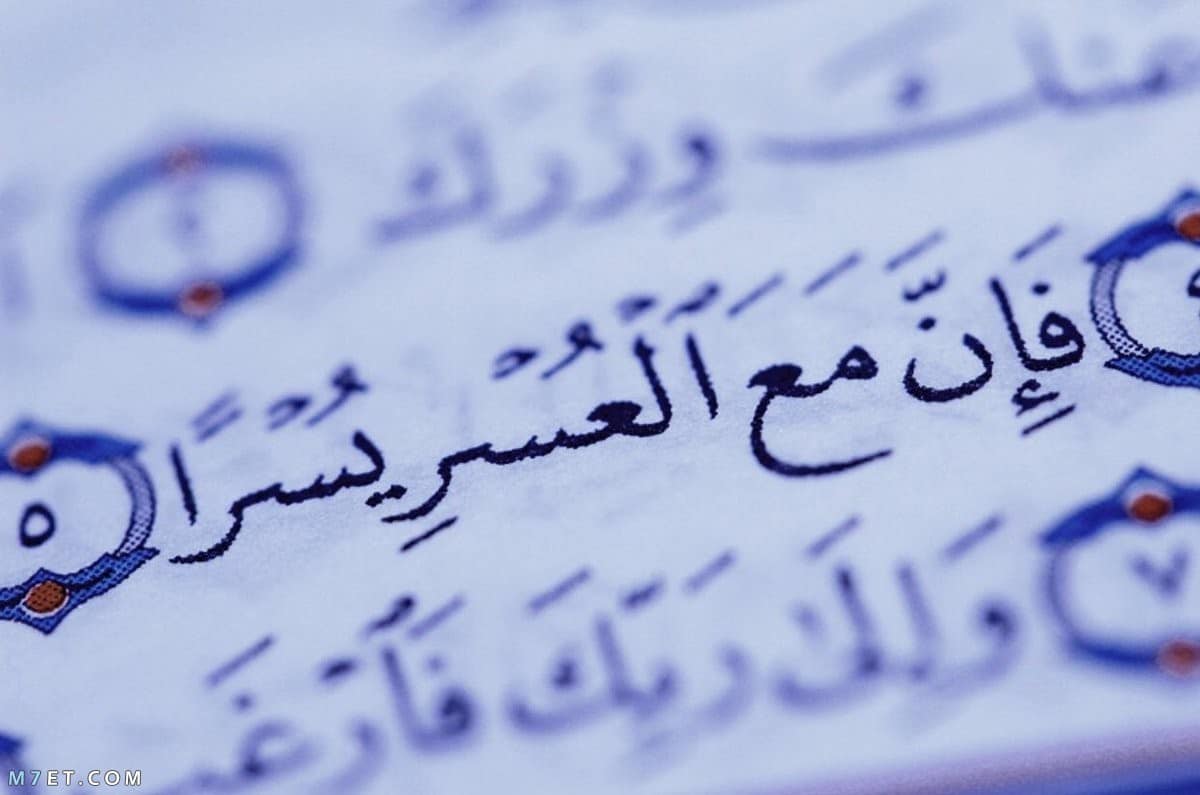 عنك وزرك
فَإِنَّ مَعَ ٱلْعُسْرِ يُسْرًا ٥
٧ وَإِلَىٰ رَبِّكَ فَٱرْغَب
M7ET.COM